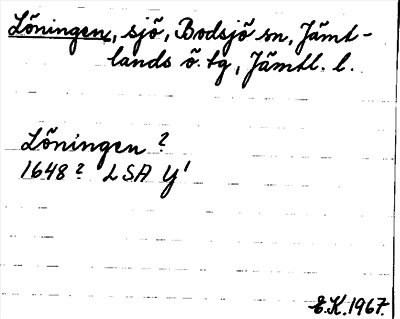 Löningen, sjö, Bodsjö sn, Jämt-
lands ö. tg, Jämtl. l.
Löningen ?
1648 ? LSA Y¹
E.K. 1967.